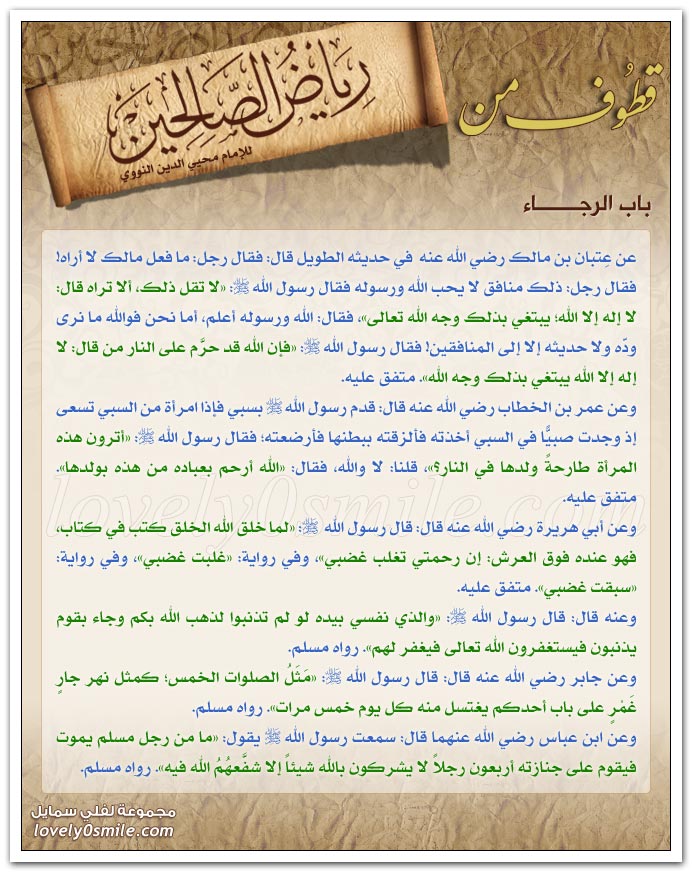 قطوف من
رياض الصالحين
للإمام محيي الدين النووي
باب الرجـــــاء
عن عِتبان بن مالك رضي الله عنه في حديثه الطويل قال: فقال رجل: ما فعل مالك لا أراه!
فقال رجل: ذلك منافق لا يحب الله ورسوله فقال رسول الله ﷺ: «لا تقل ذلك، ألا تراه قال:
لا إله إلا الله؛ يبتغي بذلك وجه الله تعالى»، فقال: الله ورسوله أعلم، أما نحن فوالله ما نرى
ودّه ولا حديثه إلا إلى المنافقين! فقال رسول الله ﷺ: «فإن الله قد حرَّم على النار من قال: لا
إله إلا الله يبتغي بذلك وجه الله». متفق عليه.
وعن عمر بن الخطاب رضي الله عنه قال: قدم رسول الله ﷺ بسبي فإذا امرأة من السبي تسعى
إذ وجدت صبيًّا في السبي أخذته فألزقته ببطنها فأرضعته؛ فقال رسول الله ﷺ: «أترون هذه
المرأة طارحةً ولدها في النار؟»، قلنا: لا والله، فقال: «الله أرحم بعباده من هذه بولدها».
متفق عليه.
وعن أبي هريرة رضي الله عنه قال: قال رسول الله ﷺ: «لما خلق الله الخلق كتب في كتاب،
فهو عنده فوق العرش: إن رحمتي تغلب غضبي»، وفي رواية: «غلبت غضبي»، وفي رواية:
«سبقت غضبي». متفق عليه.
وعنه قال: قال رسول الله ﷺ: «والذي نفسي بيده لو لم تذنبوا لذهب الله بكم وجاء بقوم
يذنبون فيستغفرون الله تعالى فيغفر لهم». رواه مسلم.
وعن جابر رضي الله عنه قال: قال رسول الله ﷺ: «مَثَلُ الصلوات الخمس؛ كمثل نهر جارٍ
غَمْرٍ على باب أحدكم يغتسل منه كل يوم خمس مرات». رواه مسلم.
وعن ابن عباس رضي الله عنهما قال: سمعت رسول الله ﷺ يقول: «ما من رجل مسلم يموت
فيقوم على جنازته أربعون رجلاً لا يشركون بالله شيئاً إلا شفَّعهُمُ الله فيه». رواه مسلم.
lovely0smile.com
مجموعة لفلي سمايل
lovely0smile.com